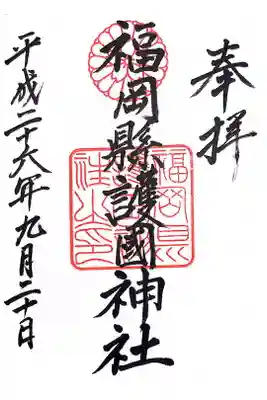 奉拝
福岡縣護國神社
平成二十六年九月二十日